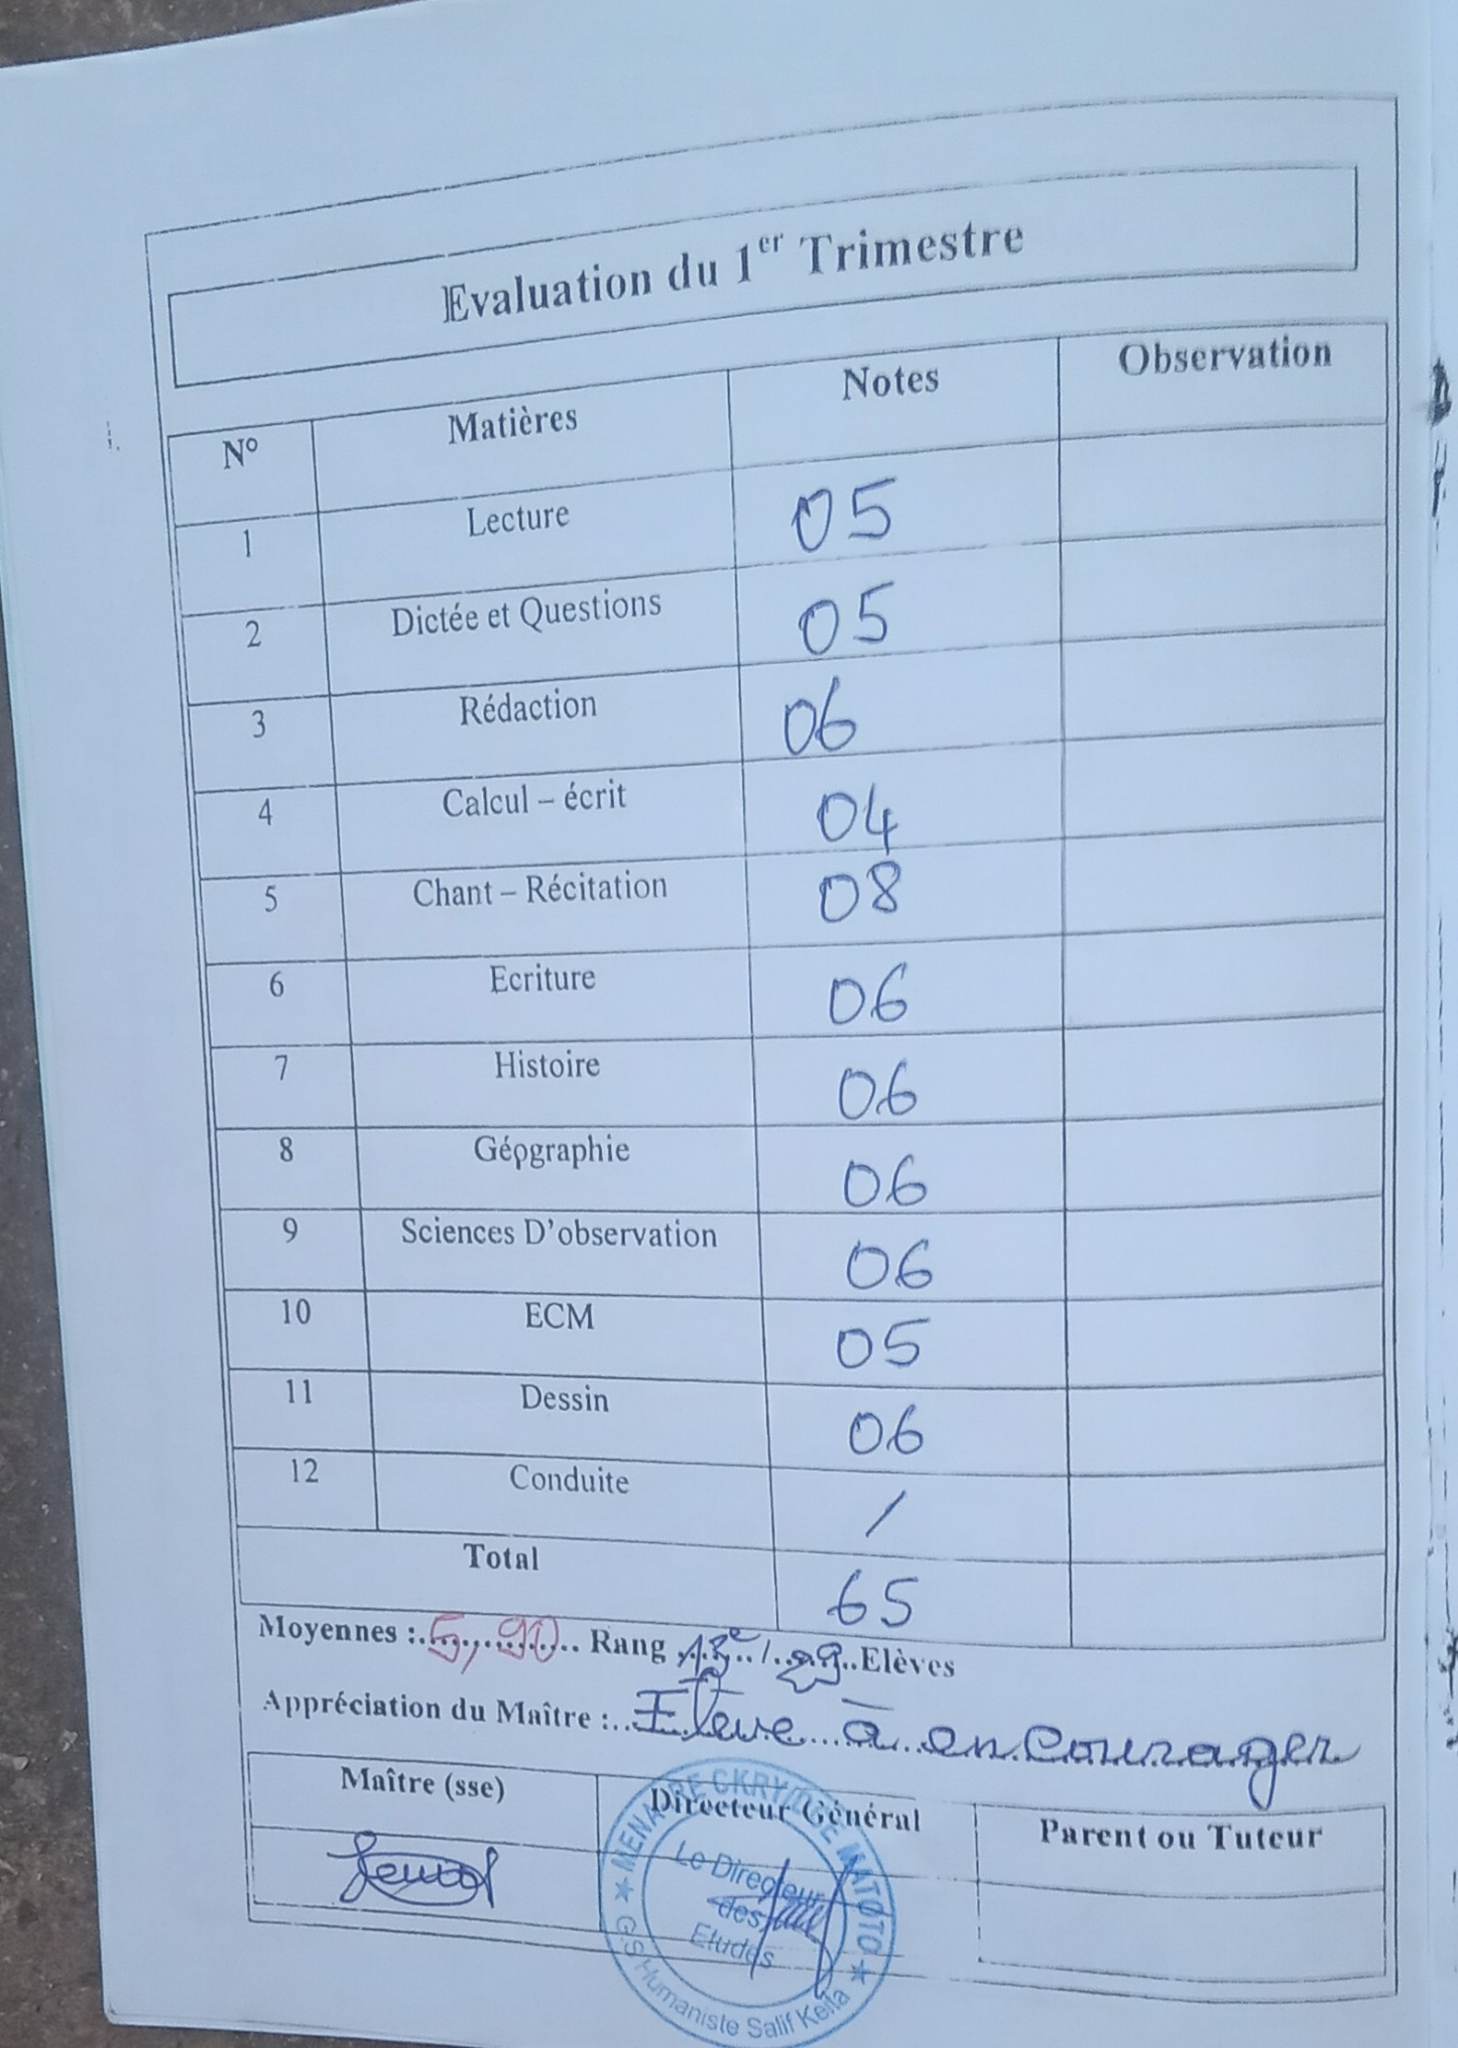 Evaluation du 1er Trimestre
N° Matières Notes Observation
1 Lecture 05
2 Dictée et Questions 05
3 Rédaction 06
4 Calcul – écrit 04
5 Chant – Récitation 08
6 Ecriture 06
7 Histoire 06
8 Géographie 06
9 Sciences D'observation 06
10 ECM 05
11 Dessin 06
12 Conduite /
Total 65
Moyennes : 5,90 Rang 13e / 29 Elèves
Appréciation du Maître : Elève à encourager
Maître (sse) Directeur Général Parent ou Tuteur
MENA DCE MATOTO
Le Directeur
des
Etudes
G.S Humaniste Salif Keita